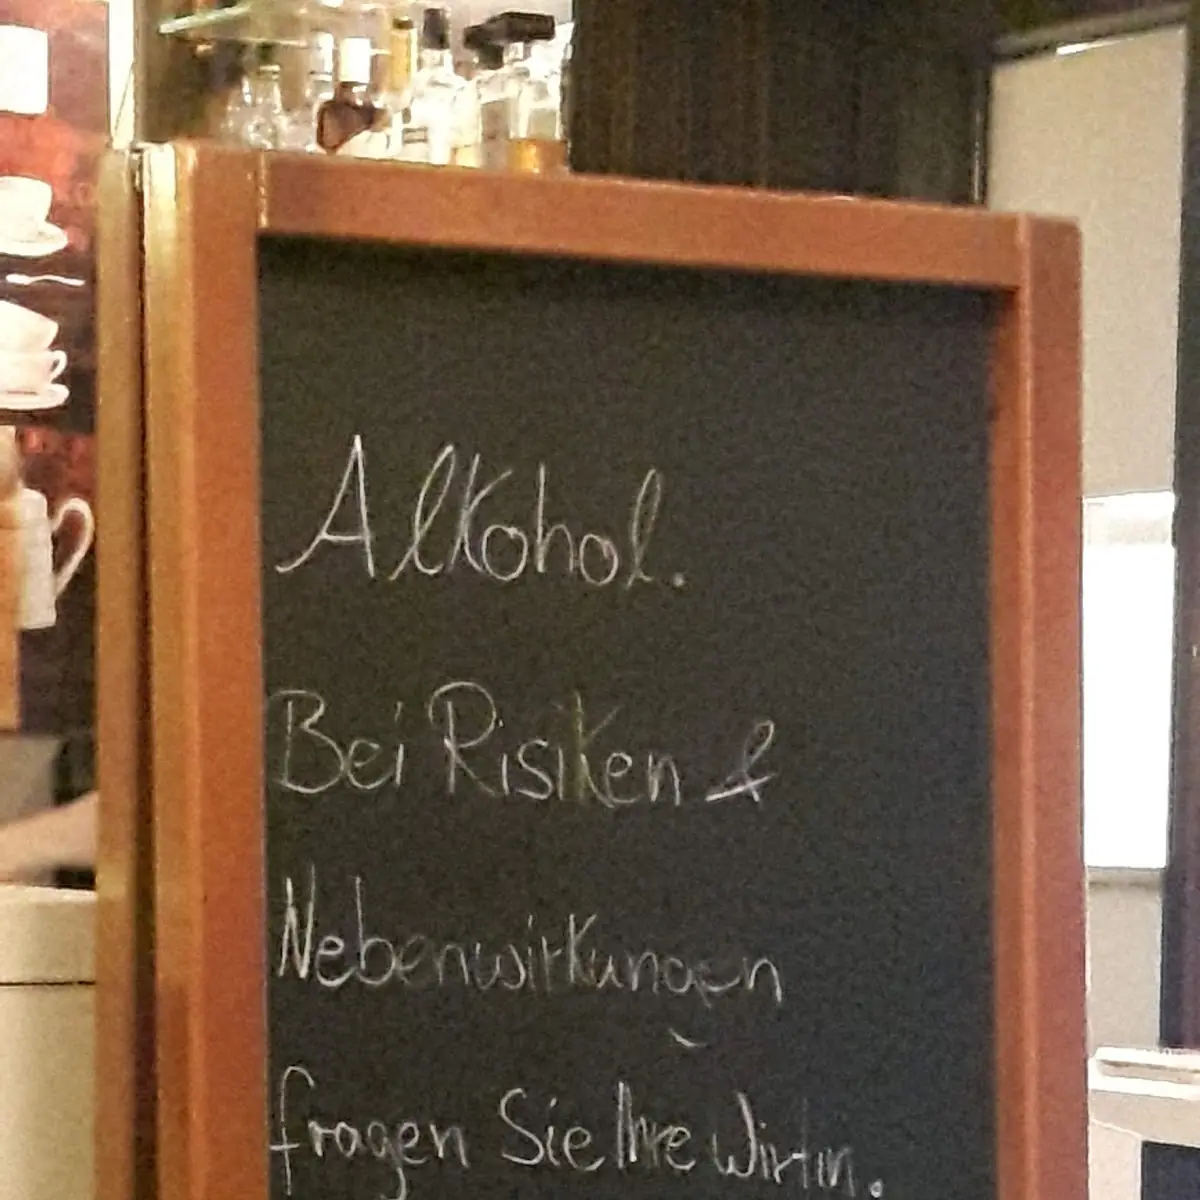 Alkohol.
Bei Risiken &
Nebenwirkungen
fragen Sie Ihre Wirtin.